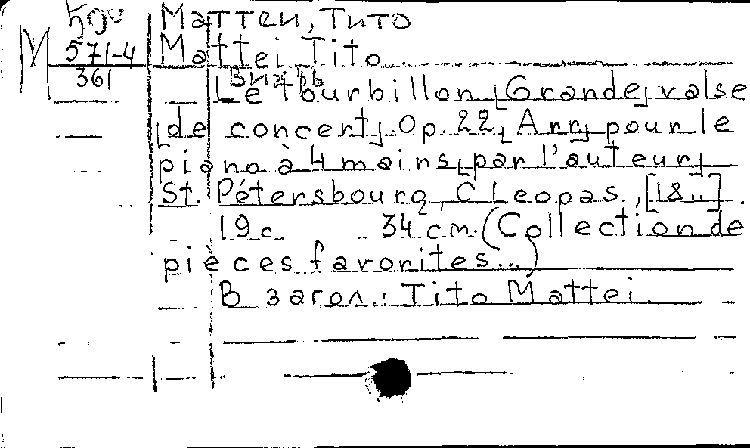 Маттеи, Тито
М 571-4 Mattei Tito
361
Вихрь
Le Tourbillon [Grande] valse
[de concert]. Op. 22, Arr. pour le
piano à 4 mains, par l'auteur]
St. Pétersbourg, C Leopas., [18..].
19 с. 34 см. (Collection de
pièces favorites...)
В загол.: Tito Mattei